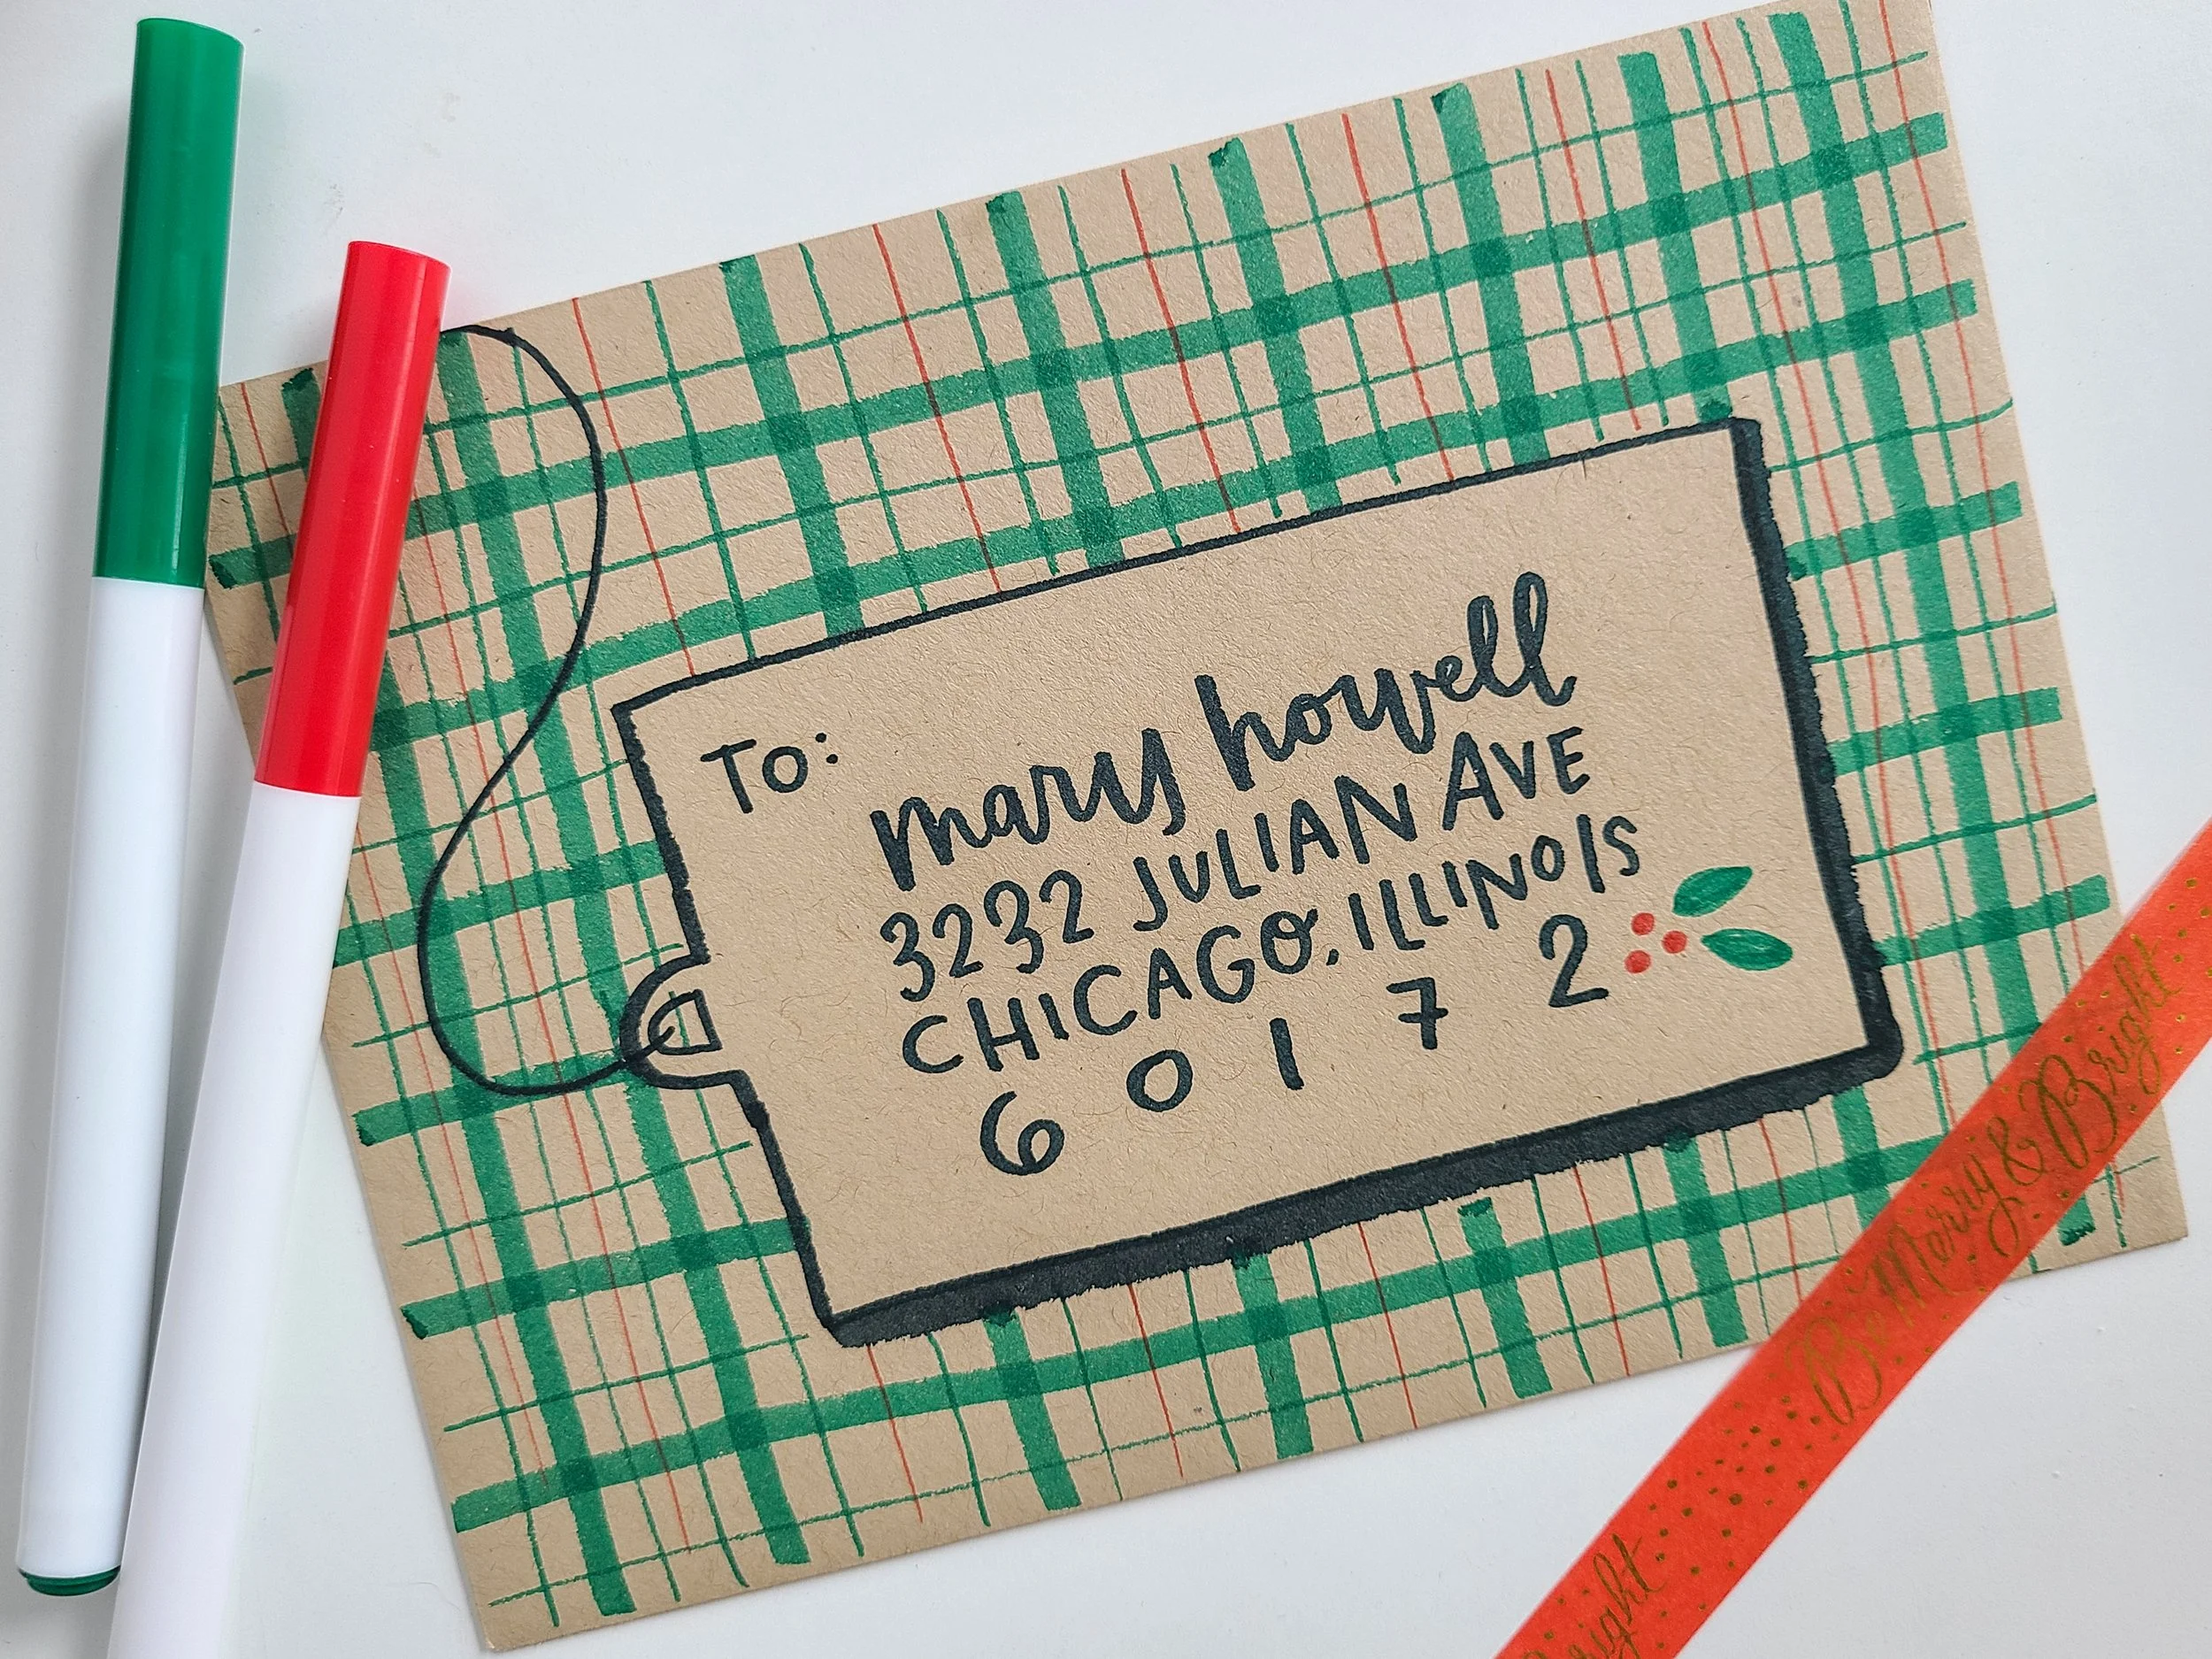 To:
mary howell
3232 JULIAN AVE
CHICAGO, ILLINOIS
6 0 1 7 2
Be Merry & Bright
Bright